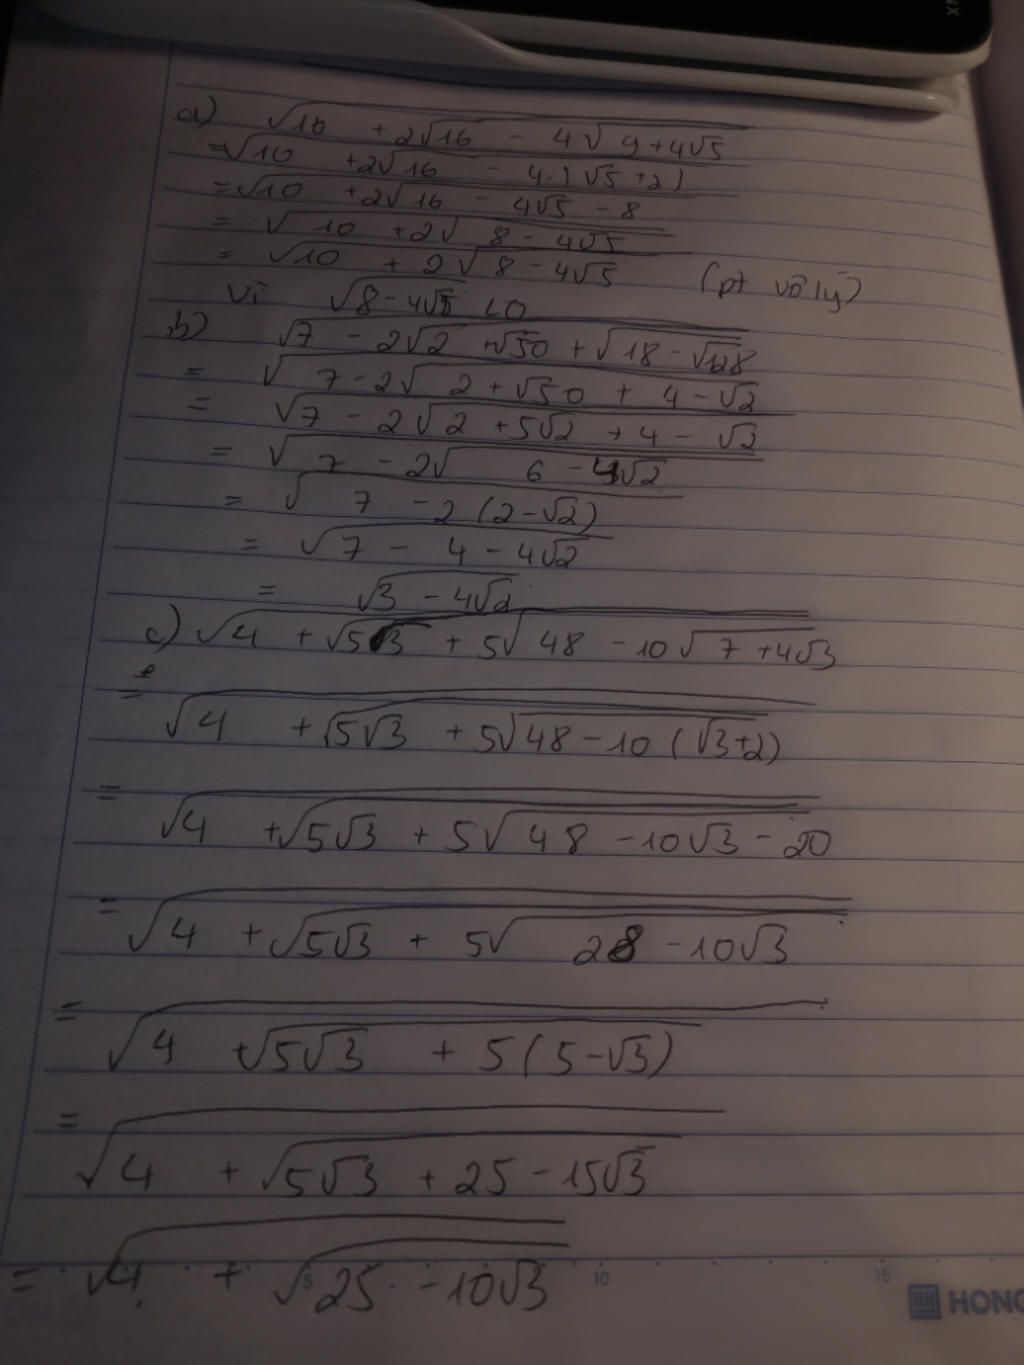 a) √10 + 2√16 - 4√9+4√5
=√10 + 2√16 - 4.(√5+2)
=√10 + 2√16 - 4√5 - 8
= √10 + 2√8 - 4√5
= √10 + 2√8 - 4√5 (pt vô lý)
Vì √8-4√5 <0
b) √7 - 2√2 + √50 + √18 - √128
= √7 - 2√2 + √50 + 4 - √2
= √7 - 2√2 + 5√2 + 4 - √2
= √7 - 2√6 - 4√2
= √7 - 2(2-√2)
= √7 - 4 - 4√2
= √3 - 4√2
c) √4 + √5√3 + 5√48 - 10√7+4√3
= √4 + √5√3 + 5√48 - 10(√3+2)
= √4 + √5√3 + 5√48 - 10√3 - 20
= √4 + √5√3 + 5√28 - 10√3
= √4 + √5√3 + 5(5-√3)
= √4 + √5√3 + 25 - 15√3
= √4 + √25 - 10√3
5 10 15
HONG